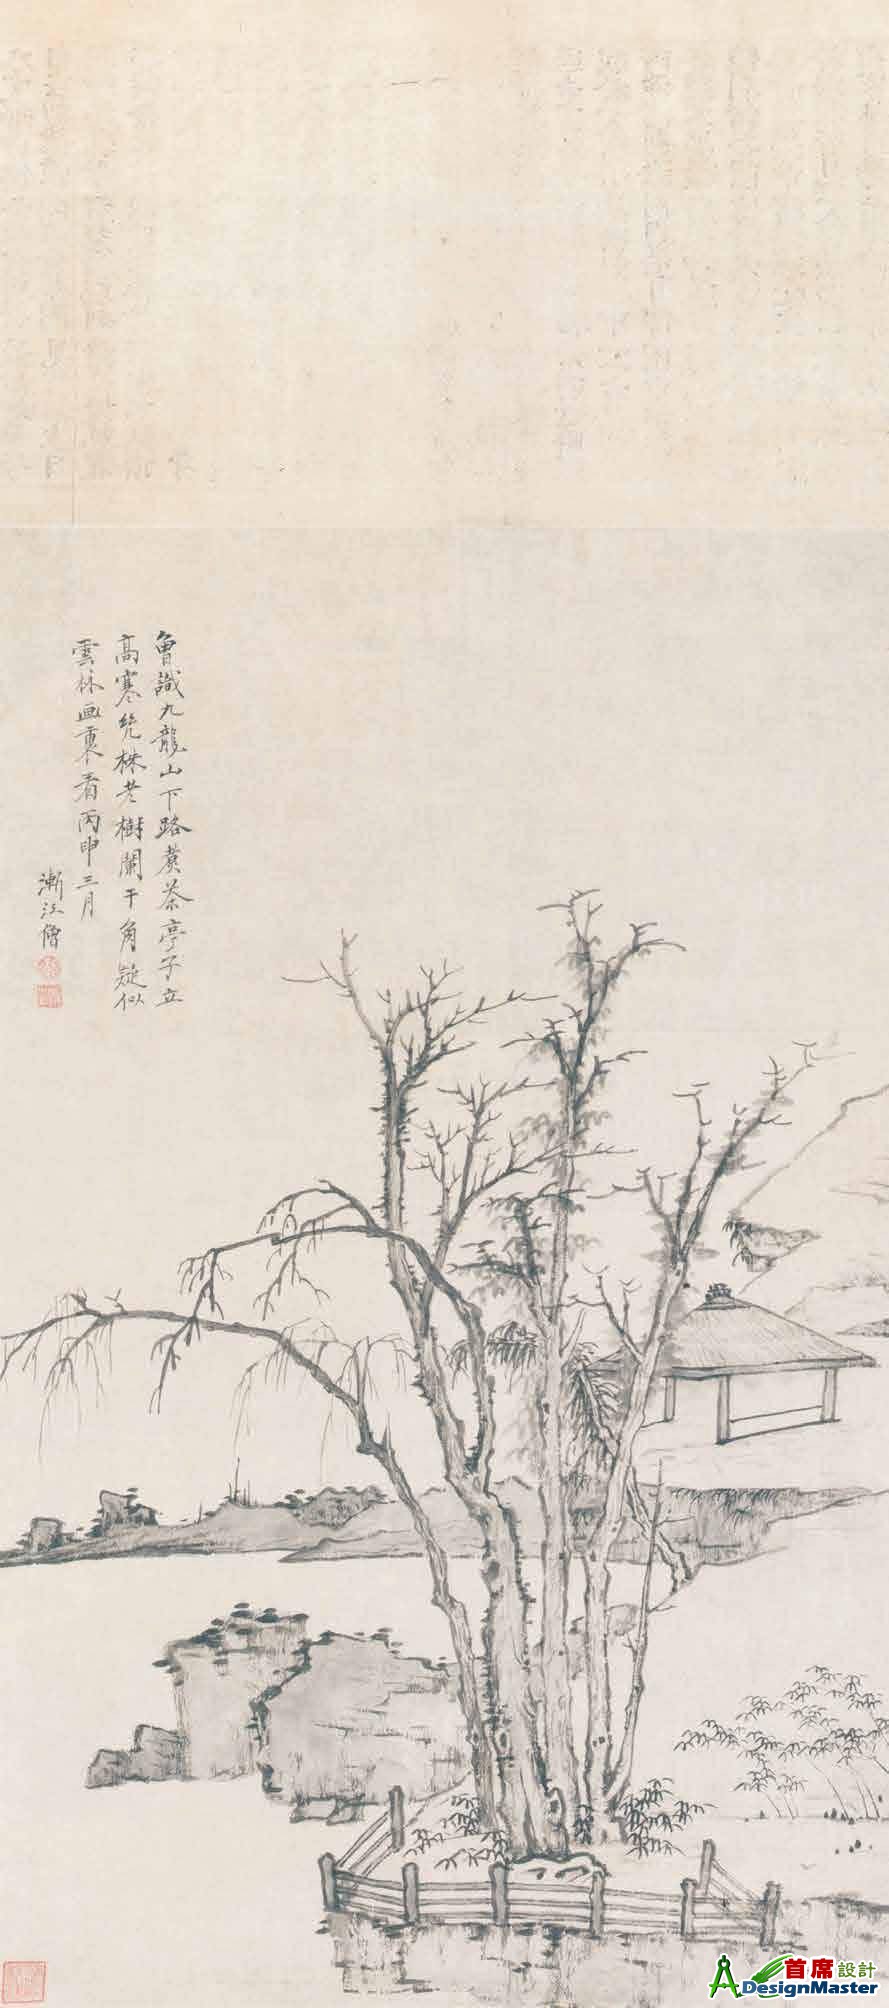 曾識九龍山下路煮茶亭子立
高寒幾株老樹闌干角疑似
雲林画裏看丙申三月
漸江僧
首席設計
DesignMaster